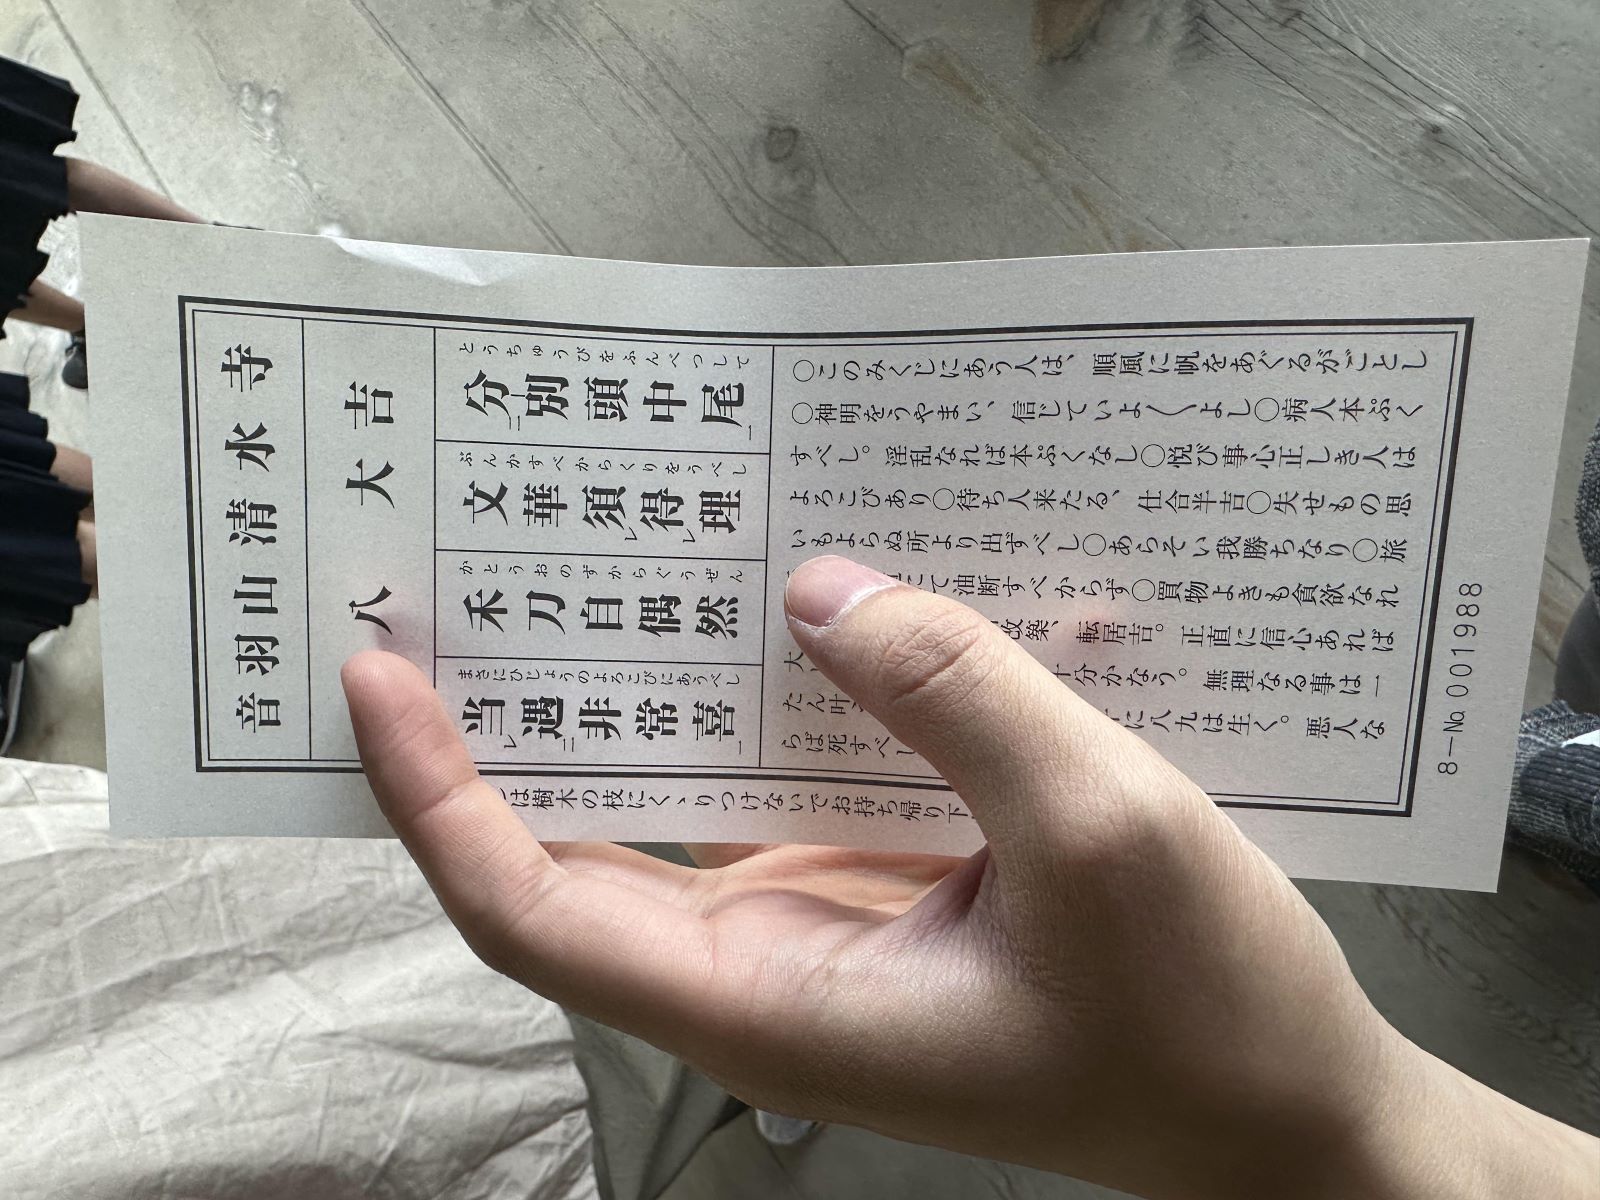 音羽山清水寺
八 大吉
とうちゅうびをふんべつして
分別頭中尾
ぶんかすべからくりをうべし
文華須得理
かとうおのずからぐうぜん
禾刀自偶然
まさにひじょうのよろこびにあうべし
当遇非常喜
○このみくじにあう人は、順風に帆をあぐるがごとし
○神明をうやまい、信じていよ〱よし○病人本ぷく
すべし。淫乱なれば本ぷくなし○悦び事心正しき人は
よろこびあり○待ち人来たる、仕合半吉○失せもの思
いもよらぬ所より出すべし○あらそい我勝ちなり○旅
にて油断すべからず○買物よきも貪欲なれ
改築、転居吉。正直に信心あれば
大 十分かなう。無理なる事は一
たん叶 に八九は生く。悪人な
らば死すべし
は樹木の枝にくゝりつけないでお持ち帰り下
8-No.001988